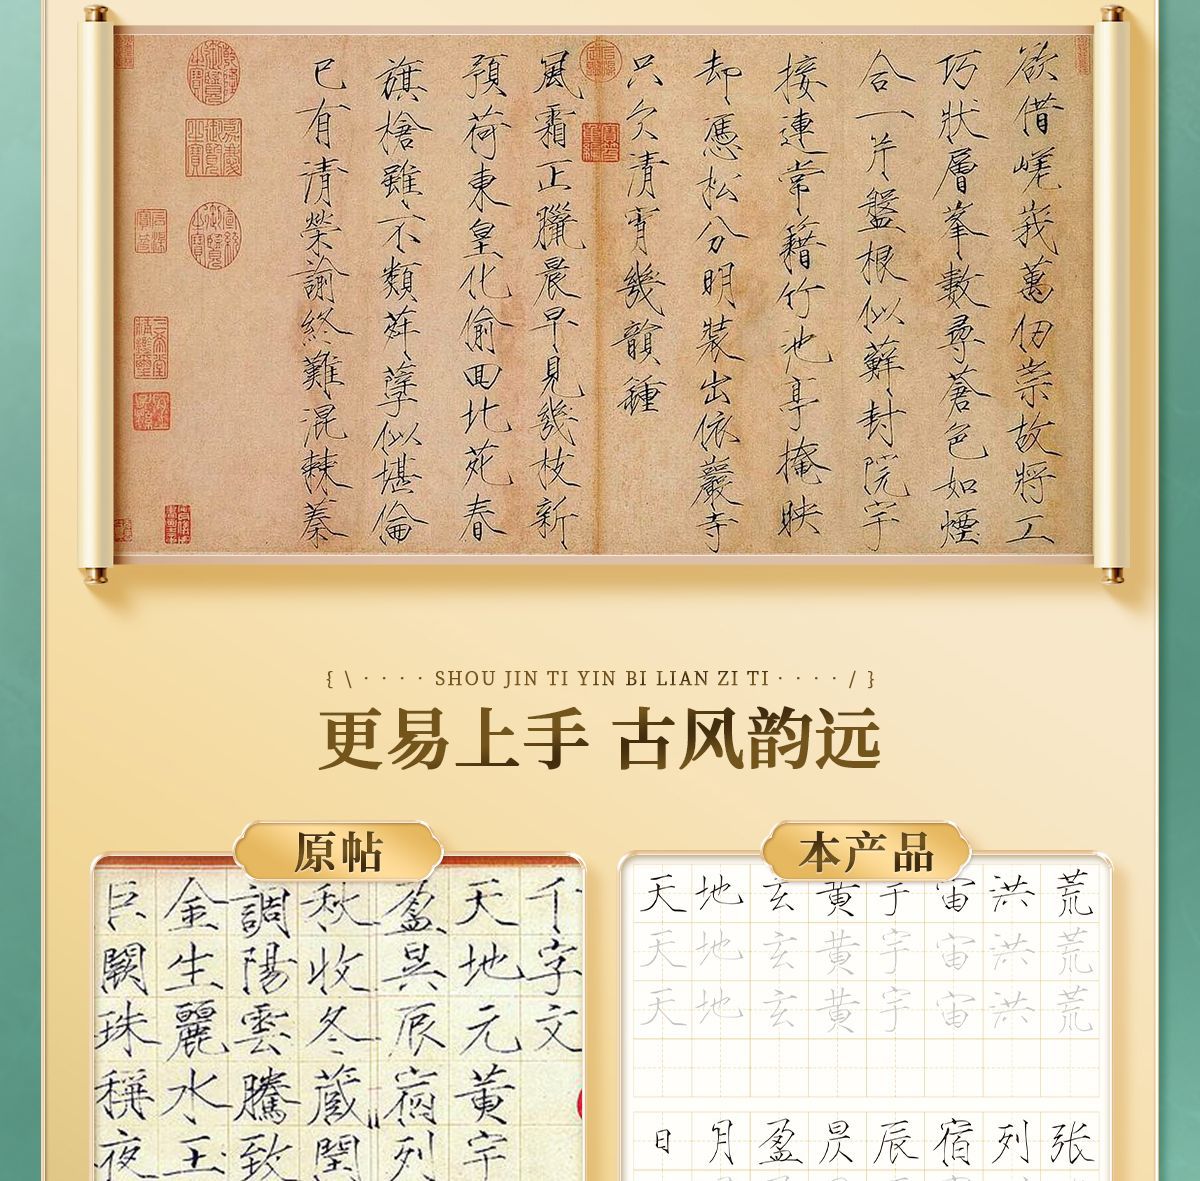 欲借嵯峩萬仞崇故將工
巧狀層峯數尋蒼色如煙
合一片盤根似蘚封院宇
接連常籍竹池亭掩映
却憑松分明裝出依巖寺
只欠清宵幾韻鍾
風霜正臘晨早見幾枝新
預荷東皇化偷回北苑春
旗槍雖不類荈孽似堪倫
已有清榮諭終難混棘蓁
{ \ · · · · SHOU JIN TI YIN BI LIAN ZI TI · · · · / }
更易上手 古风韵远
原帖
千字文
天地元黄宇
盈昃辰宿列
秋收冬蔵閏
調陽雲騰致
金生麗水玉
巨闕珠稱夜
本产品
天地玄黄宇宙洪荒
天地玄黄宇宙洪荒
天地玄黄宇宙洪荒
日月盈昃辰宿列张